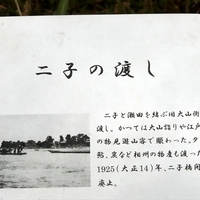 二子の渡し
二子と瀬田を結ぶ旧大山街
渡し。かつては大山詣りや江戸
の物見遊山客で賑わった。タ
鮎、炭など相州の物産も渡った
1925(大正14)年、二子橋開
廃止。